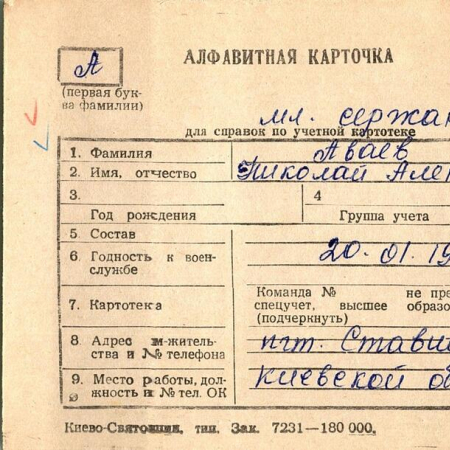 АЛФАВИТНАЯ КАРТОЧКА
А
(первая бук-
ва фамилии)
мл. сержан
для справок по учетной картотеке
1. Фамилия Аваев
2. Имя, отчество Николай Але
3. 4
Год рождения Группа учета
5 Состав
6. Годность к воен-
службе 20.01.19
Команда № не пре
7. Картотека спецучет, высшее образо
(подчеркнуть)
8 Адрес м-житель-
ства и № телефона пгт. Ставищ
9. Место работы, дол-
жность и № тел. ОК Киевской об
Киево-Святошин. тип. Зак. 7231—180 000.